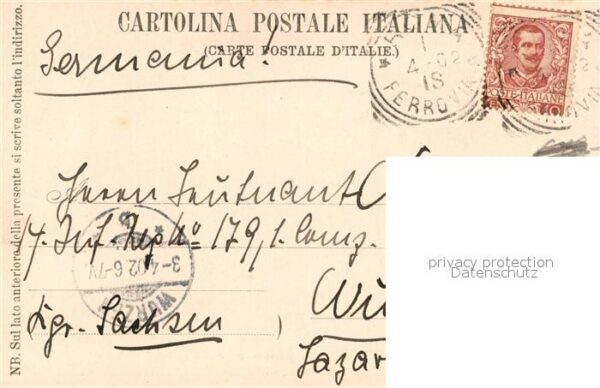 CARTOLINA POSTALE ITALIANA
(CARTE POSTALE D'ITALIE.)
Germania!
NB. Sul lato anteriore della presente si scrive soltanto l'indirizzo.
4-02
FERROVI
POSTE ITALIANE
Herrn Leutnant
Inf. Reg. No 179, 1. Comp.
3-4.02.6-7V.
WURZEN
Wu
Kgr. Sachsen
Lazar
privacy protection
Datenschutz